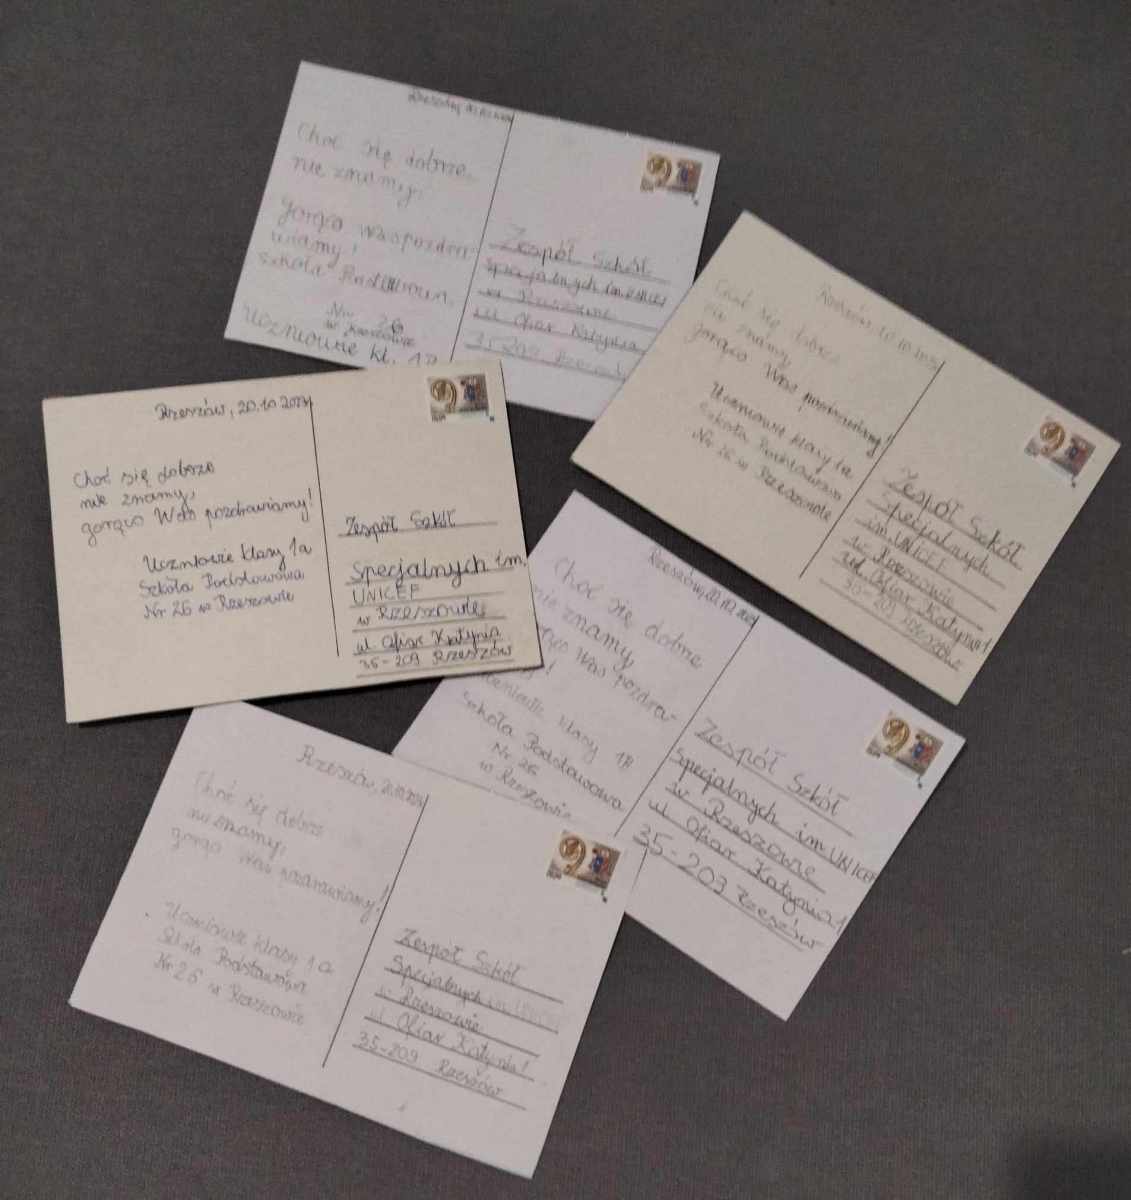 Choć się dobrze
nie znamy,
gorąco Was pozdra-
wiamy!
Szkoła
Nr 26
w Rzeszowie
Uczniowie kl. 1a
Zespół Szkół
Specjalnych im.
w Rzeszowie
ul Ofiar Katynia
35-209 Rzeszów
Choć się dobrze
nie znamy
gorąco Was pozdrawiamy!
Uczniowie klasy 1a
Szkoła Podstawowa
Nr 26 w Rzeszowie
Zespół Szkół
Specjalnych
im. UNICEF
w Rzeszowie
ul. Ofiar Katynia 1
35-209 Rzeszów
Rzeszów, 20.10 2024
Choć się dobrze
nie znamy,
gorąco Was pozdrawiamy!
Uczniowie klasy 1a
Szkoła Podstawowa
Nr 26 w Rzeszowie
Zespół Szkół
Specjalnych im.
UNICEF
w Rzeszowie
ul. Ofiar Katynia
35-209 Rzeszów
Rzeszów,
Choć się dobrze
nie znamy,
Was pozdra-
klasy 1a
Szkoła Podstawowa
Nr 26
w Rzeszowie
Zespół Szkół
Specjalnych im UNICEF
w Rzeszowie
ul Ofiar Katynia 1
35-209 Rzeszów
Rzeszów,
Choć się dobrze
nie znamy,
gorąco Was pozdrawiamy!
Uczniowie klasy 1a
Szkoła Podstawowa
Nr 26 w Rzeszowie
Zespół Szkół
Specjalnych im
w Rzeszowie
ul Ofiar Katynia 1
35-209 Rzeszów